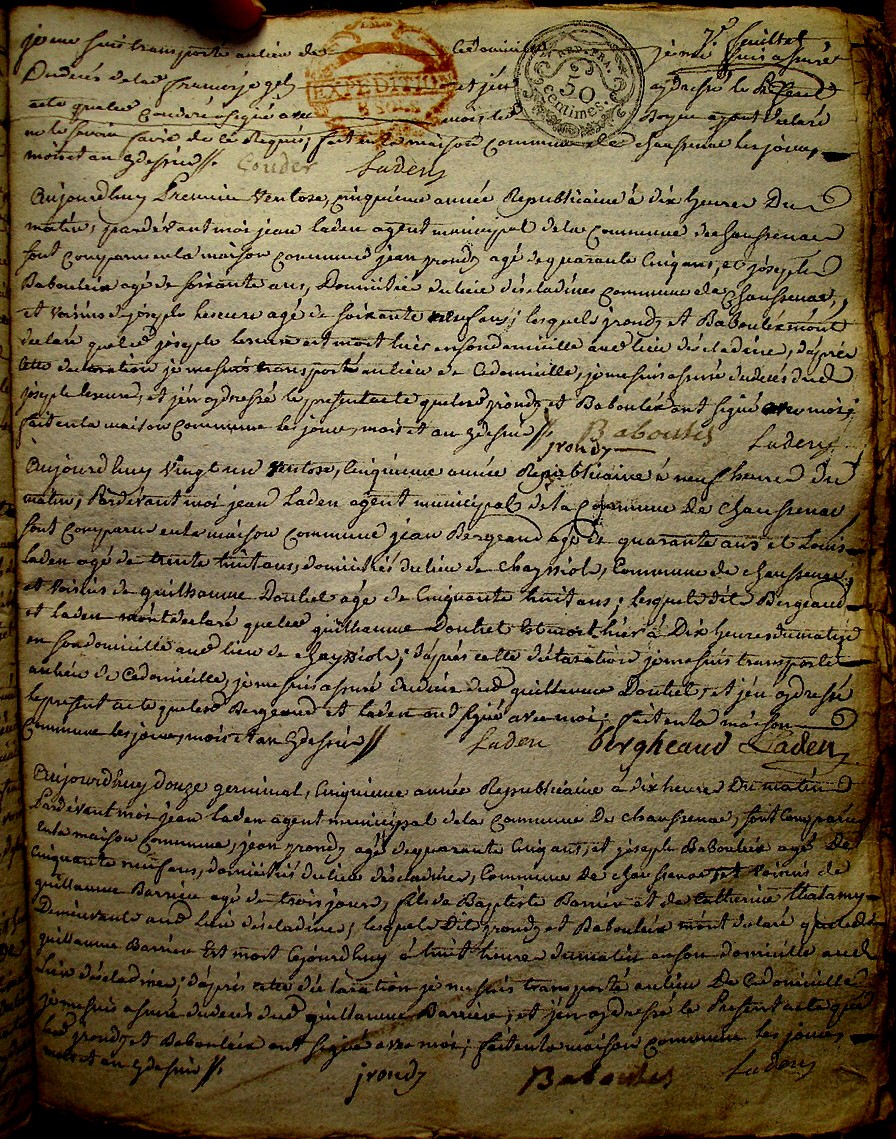 7e feuillet
je me suis transporté au lieu de ce domicile je me suis assuré
Du décés de lad françoise et j'en ay dressé le présent
acte que led Couderc a signé avec moi, led Boyer ayant declaré
ne le savoir faire de ce Requis; fait en la maison commune de chaussenac les jour,
mois et an qdessus //. Couder Laden
EXPEDITION
50 centimes.
Aujourdhuy Premier Ventose, cinquieme année Republicaine à dix heures Du
matin, pardévant moi jean laden agent municipal de la Commune de chaussenac
sont comparus en la maison commune jean jrondy agé de quarante cinq ans, et joseph
Baboulix agé de soixante ans, Domiciliés du lieu déscladines commune de chaussenac,
et voisins de joseph leseure agé de soixante neuf ans; lesquels jrondy et Baboulix m'ont
declaré que led joseph leseure est mort hier en son domicille aud lieu déscladine, d'après
cette declaration je me suis transporté au lieu de ce domicille, je me suis assuré du décés dud
joseph leseure, et j'en ay dressé le present acte que lesd jrondy et Baboulix ont signé avec moi;
fait en la maison commune les jour, mois et an qdessus //. Baboulix
jrondy Laden
Aujourdhuy vingt un ventose, Cinquieme année Republicaine à neuf heures du
matin, Pardévant moi jean Laden agent municipal de la Commune de chaussenac
sont comparus en la maison commune jean Bergeaud agé de quarante ans et Louis
laden agé de trente huit ans, domiciliés du lieu de chayssiol, Commune de chaussenac,
et voisins de guilhaume Doutiel agé de Cinquante huit ans; lesquels dits Bergeaud
et laden m'ont declaré que led guilhaume Doutiel Est mort hier à Dix heures du matin
en son domicille aud lieu de chayssiol; d'après cette déclaration je me suis transporté
au lieu de ce domicille, je me suis assuré du décés dud guillaume Doutiel, et j'en ay dressé
le present acte que lesd Bergeaud et laden ont signé avec moi; fait en la maison
Commune les jour, mois et an qdessus // Laden bergheaud Laden
Aujourdhuy douze germinal, cinquieme année Republicaine à dix heures Du matin
Pardévant moi jean laden agent municipal de la Commune De chaussenac, sont comparus
en la maison Commune, jean jrondy agé de quarante cinq ans, et joseph Baboulix agé De
cinquante neuf ans, domiciliés du lieu déscladine, Commune De chaussenac, et voisins de
guillaume Barriere agé de trois jours, fils de Baptiste Barriere et de Catherine thatamy
Demeurants aud lieu déscladine; lesquels Dit jrondy et Baboulix m'ont declaré que led
guillaume Barriere Est mort cejourdhuy à huit heures du matin en son domicille aud
lieu déscladine; d'après cette déclaration je me suis transporté au lieu De ce domicille
je me suis assuré du décés dud guillaume Barriere, et j'en ay dressé le Present acte que
lesd jrondy et Baboulix ont signé avec moi; fait en la maison commune les jours,
mois et an qdessus //. jrondy Baboulix Laden